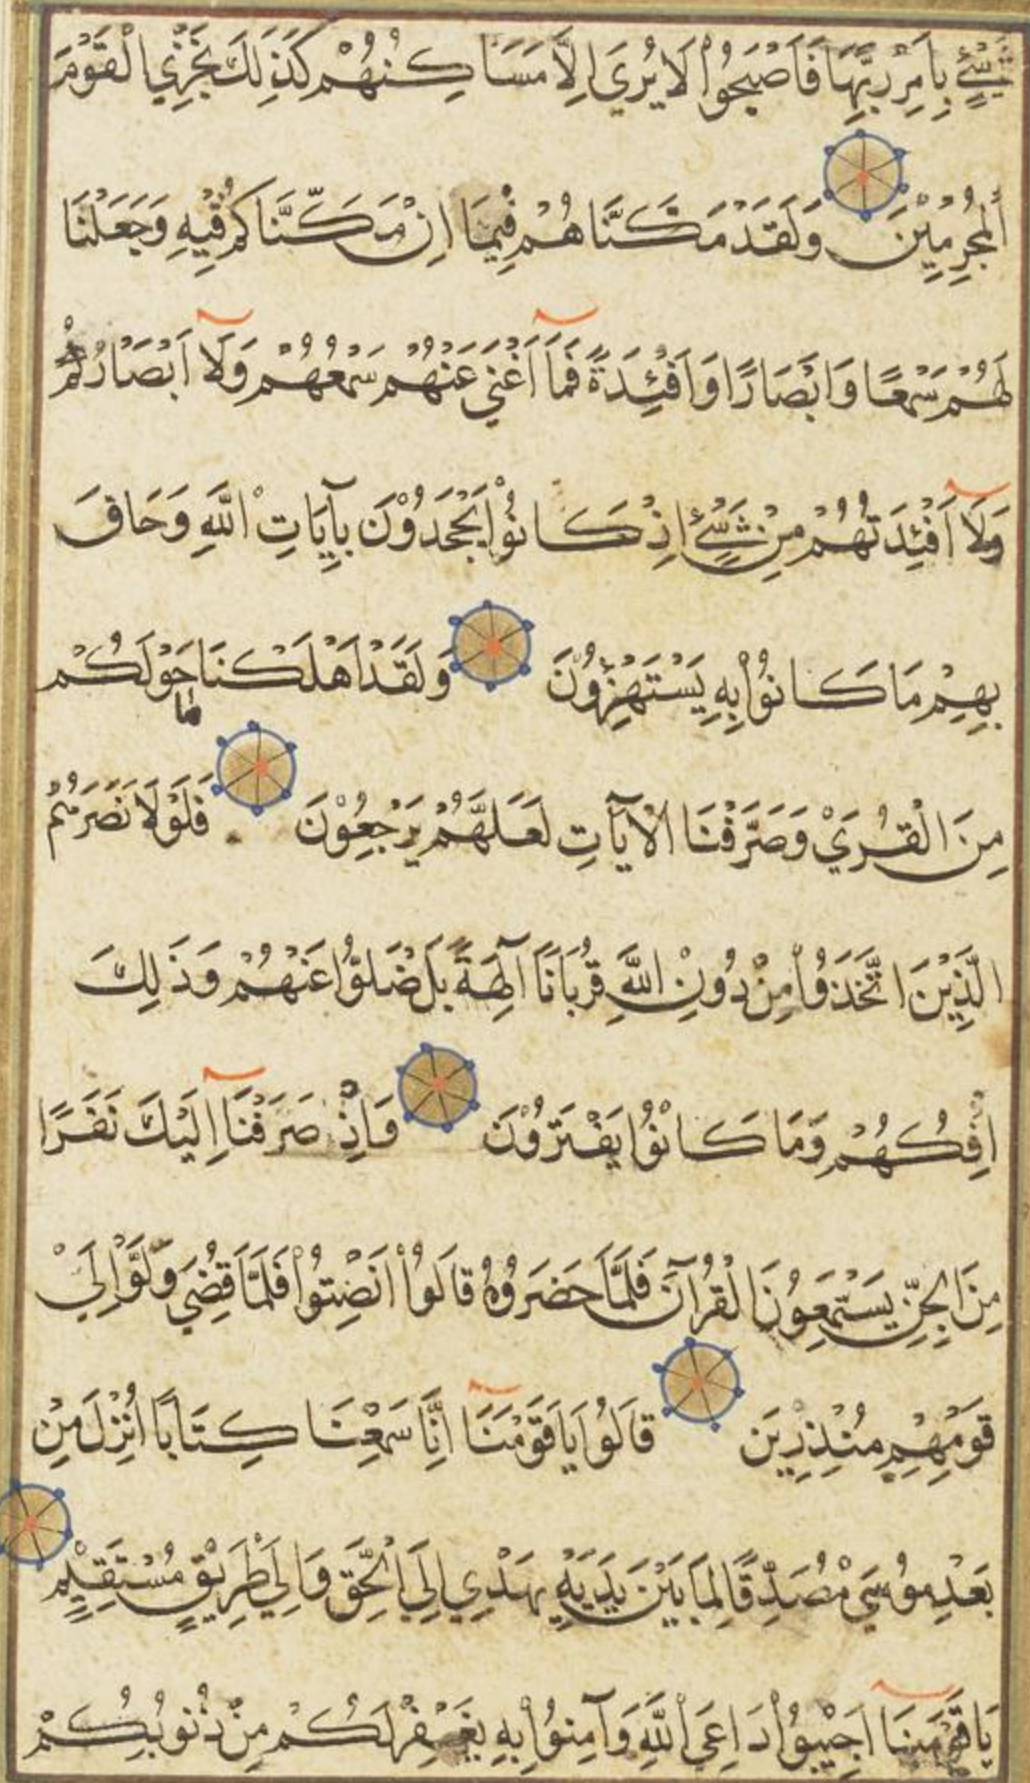 شَيْءٍ بِاَمْرِ رَبِّهَا فَاَصْبَحُوا لَا يُرٰي اِلَّا مَسَاكِنُهُمْ كَذٰلِكَ نَجْزِي الْقَوْمَ
الْمُجْرِمِيْنَ وَلَقَدْ مَكَّنَّاهُمْ فِيْمَا اِنْ مَكَّنَّاكُمْ فِيْهِ وَجَعَلْنَا
لَهُمْ سَمْعًا وَاَبْصَارًا وَاَفْئِدَةً فَمَآ اَغْنٰي عَنْهُمْ سَمْعُهُمْ وَلَآ اَبْصَارُهُمْ
وَلَآ اَفْئِدَتُهُمْ مِنْ شَيْءٍ اِذْ كَانُوْا يَجْحَدُوْنَ بِآيَاتِ اللّٰهِ وَحَاقَ
بِهِمْ مَا كَانُوْا بِهِ يَسْتَهْزِؤُنَ وَلَقَدْ اَهْلَكْنَا مَا حَوْلَكُمْ
مِنَ الْقُرٰيْ وَصَرَّفْنَا الْآيَاتِ لَعَلَّهُمْ يَرْجِعُوْنَ فَلَوْلَا نَصَرَهُمُ
الَّذِيْنَ اتَّخَذُوْا مِنْ دُوْنِ اللّٰهِ قُرْبَانًا آلِهَةً بَلْ ضَلُّوْا عَنْهُمْ وَذٰلِكَ
اِفْكُهُمْ وَمَا كَانُوْا يَفْتَرُوْنَ وَاِذْ صَرَفْنَآ اِلَيْكَ نَفَرًا
مِنَ الْجِنِّ يَسْتَمِعُوْنَ الْقُرْآنَ فَلَمَّا حَضَرُوْهُ قَالُوْا اَنْصِتُوْا فَلَمَّا قُضِيَ وَلَّوْا اِلٰيْ
قَوْمِهِمْ مُنْذِرِيْنَ قَالُوْا يَا قَوْمَنَآ اِنَّا سَمِعْنَا كِتَابًا اُنْزِلَ مِنْ
بَعْدِ مُوْسٰي مُصَدِّقًا لِمَا بَيْنَ يَدَيْهِ يَهْدِي اِلَي الْحَقِّ وَاِلٰي طَرِيْقٍ مُسْتَقِيْمٍ
يَا قَوْمَنَآ اَجِيْبُوْا دَاعِيَ اللّٰهِ وَآمِنُوْا بِهِ يَغْفِرْ لَكُمْ مِنْ ذُنُوْبِكُمْ